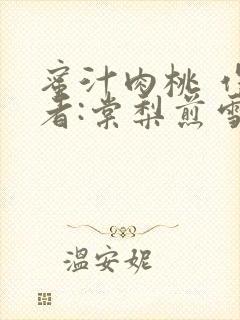 蜜汁肉桃 作
者:棠梨煎雪
温安妮